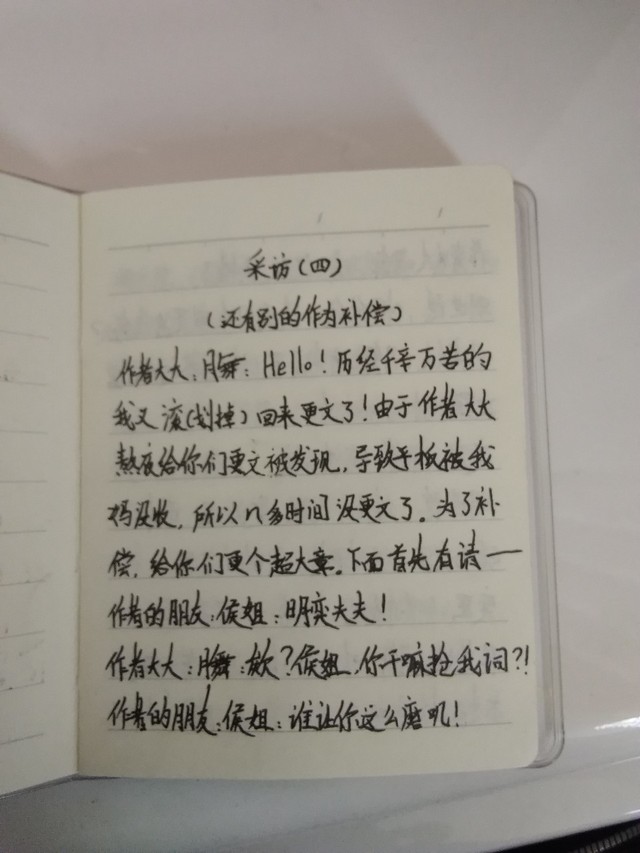 采访(四)
(还有别的作为补偿)
作者大大:月舞:Hello!历经千辛万苦的
我又滚(划掉)回来更文了!由于作者大大
熬夜给你们更文被发现,导致手机被我
妈没收,所以n多时间没更文了。为了补
偿,给你们更个超大章。下面首先有请——
作者的朋友:侯姐:明奕夫夫!
作者大大:月舞:欸?侯姐,你干嘛抢我词?!
作者的朋友:侯姐:谁让你这么磨叽!